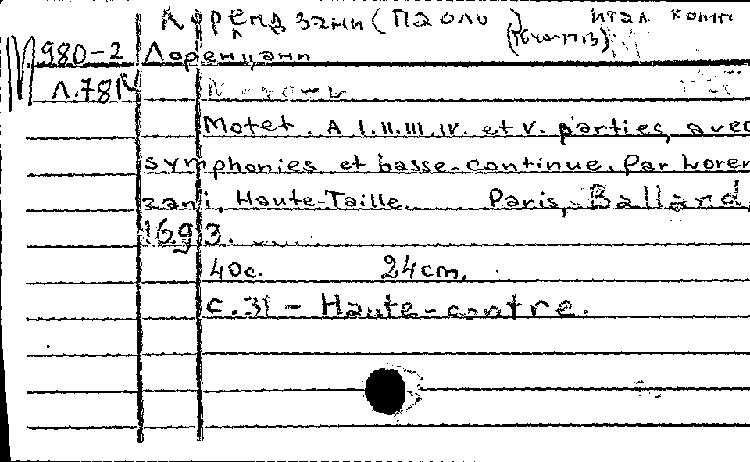 Лорендзани (Паоло) итал. комп
(1640-1713)
М 980-2 Лоренцани
Л.781
Motet. A I.II.III.IV. et V. parties, avec
symphonies et basse-continue. Par Loren
zani, Haute-Taille. Paris, Ballard,
1693.
40с. 24cm.
с.31 - Haute-contre.